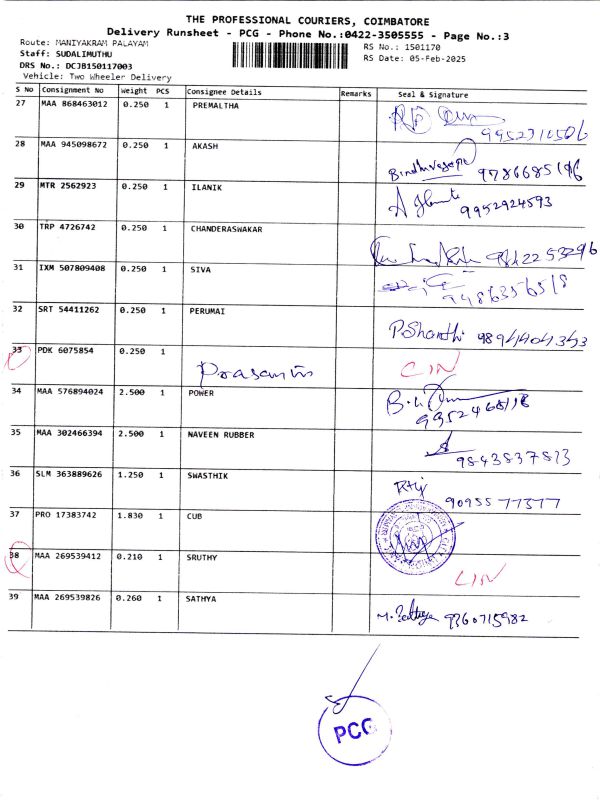 THE PROFESSIONAL COURIERS, COIMBATORE
Delivery Runsheet - PCG - Phone No.:0422-3505555 - Page No.:3
Route: MANIYAKRAM PALAYAM
RS No.: 1501170
Staff: SUDALIMUTHU
RS Date: 05-Feb-2025
DRS No.: DCJB150117003
Vehicle: Two Wheeler Delivery
S No Consignment No Weight PCS Consignee Details Remarks Seal & Signature
27 MAA 868463012 0.250 1 PREMALTHA
9952710506
28 MAA 945098672 0.250 1 AKASH
9786685196
29 MTR 2562923 0.250 1 ILANIK
9952924593
30 TRP 4726742 0.250 1 CHANDERASWAKAR
31 IXM 507809408 0.250 1 SIVA
9486356518
32 SRT 54411262 0.250 1 PERUMAI
P.Shanthi 9894404343
33 PDK 6075854 0.250 1 Prasanth CIN
34 MAA 576894024 2.500 1 POWER
9352468118
35 MAA 302466394 2.500 1 NAVEEN RUBBER
9843837813
36 SLM 363889626 1.250 1 SWASTHIK
9095577377
37 PRO 17383742 1.830 1 CUB
38 MAA 269539412 0.210 1 SRUTHY CIN
39 MAA 269539826 0.260 1 SATHYA M. Sathya 9360715982
PCG